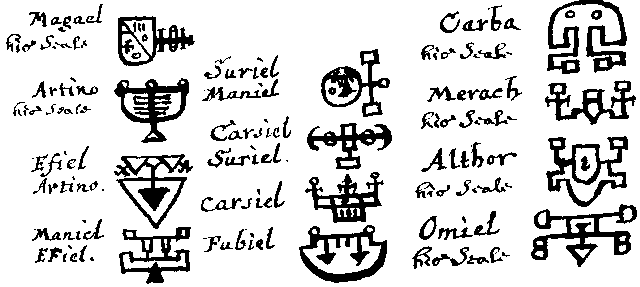 Magael
his Seale
Artino
his Seale
Efiel
Artino.
Maniel
Efiel.
Suriel
Maniel
Carsiel
Suriel.
Carsiel
Fubiel
Carba
his Seale
Merach
his Seale
Althor
his Seale
Omiel
his Seale